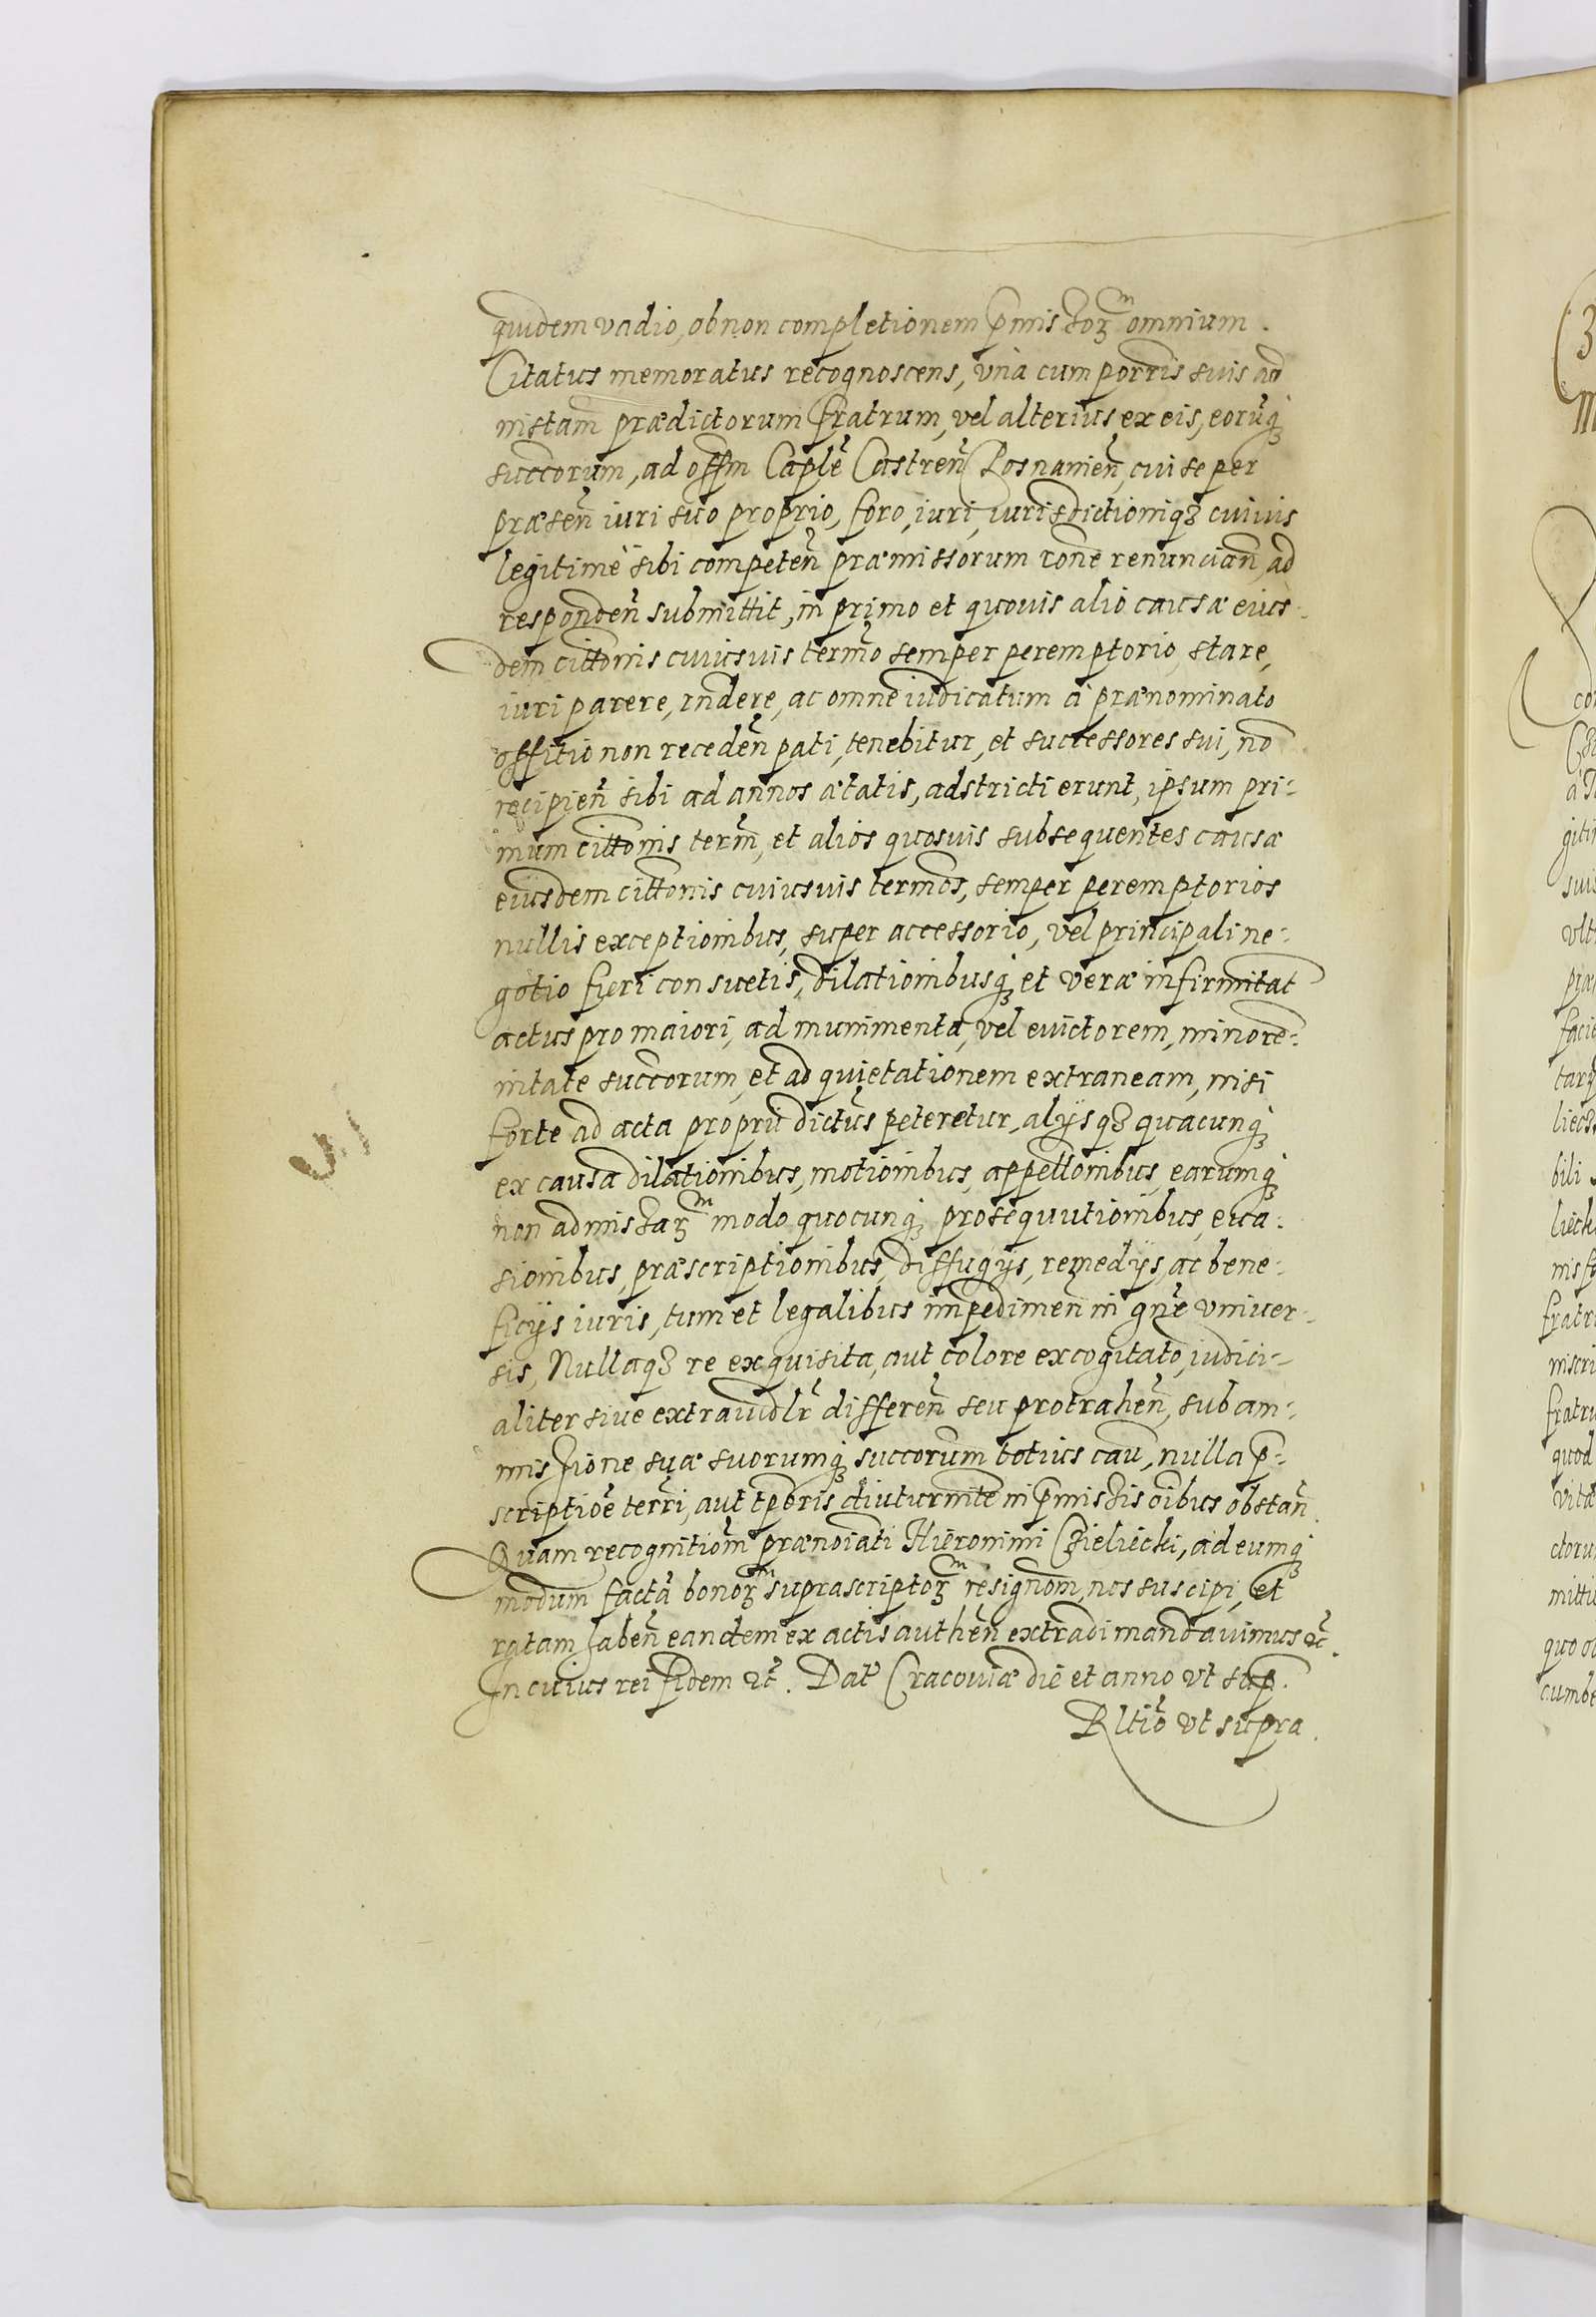 quidem vadio, ob non completionem p̄missor̄ꝫᵐ omnium.
Citatus memoratus recognoscens, vnà cum porr̄is suis ad
instam̄ prædictorum fratrum, vel alterius ex eis, eorūqꝫ
succorum̄, ad off̄m Capl̄e Castren̄ Posnanien̄, cui se per
præsen̄ iuri suo proprio, foro, iuri, iurisdictioniqꝫ cuiuis
legitimè sibi competen̄ præmissorum rōne renuncian̄, ad
responden̄ submittit, in primo et quouis alio causæ eius-
dem citt̄onis cuiusuis term̄o semper peremptorio stare,
iuri parere, rn̄dere, ac omne iudicatum à prænominato
offitio non receden̄ pati, tenebitur, et successores sui, nō
recipien̄ sibi ad annos ætatis, adstricti erunt, ipsum pri-
mum citt̄onis term̄, et alios quosuis subsequentes causæ
eiusdem citt̄onis cuiusuis term̄os, semper peremptorios
nullis exceptionibus, super accessorio, vel principali ne-
gotio fieri consuetis, dilationibusqꝫ et veræ infirmitat̄
actus pro maiori, ad munimenta, vel euictorem, minore-
nitate succorum̄, et ad quietationem extraneam, nisi
forte ad acta propru dictūs peteretur, alijsqꝫ quacunqꝫ
ex causa dilationibus, motionibus, appell̄onibus, earumqꝫ
non admissar̄ꝫᵐ modo quocunqꝫ prosequutionibus, eua-
sionibus, præscriptionibus, diffugijs, remedijs, ac bene-
ficijs iuris, tum et legalibus impedimen̄ in gn̄e vniuer-
sis, Nullaqꝫ re exquisita, aut colore excogitato, iudici-
aliter siue extraiudlr̄ differen̄ seu protrahen̄, sub am-
missione suæ suorumqꝫ succorum̄ totius cau̅, nulla p̄-
scriptiōe terr̄i, aut tp̄oris diuturnit̄e in p̄missis ōibus obstan̄.
Quam recognitiōm prænoīati Hieronimi Czieliecki, ad eumqꝫ
modum factā bonor̄ꝫᵐ suprascriptor̄ꝫᵐ resignōm, nos suscipi, et
ratam haben̄ eandem ex actis authen̄ extradi mandauimus &c̄.
In cuius rei fidem &c̄. Dat̄ Cracouiæ die et anno vt sup̄.
Rltiō vt supra.